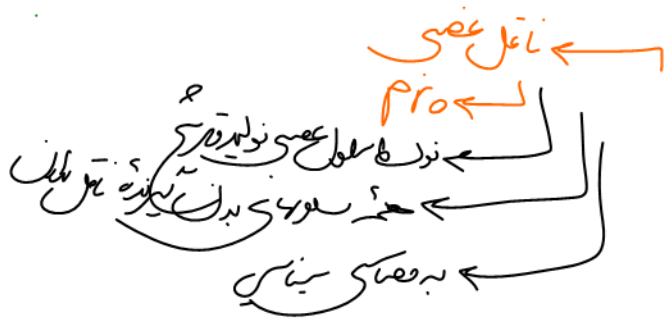 ناقل عصبی
pro
نوک سلول عصبی تولید و ترشح
همهٔ سلولهای بدن گیرندهٔ ناقل
به فضای سیناپسی